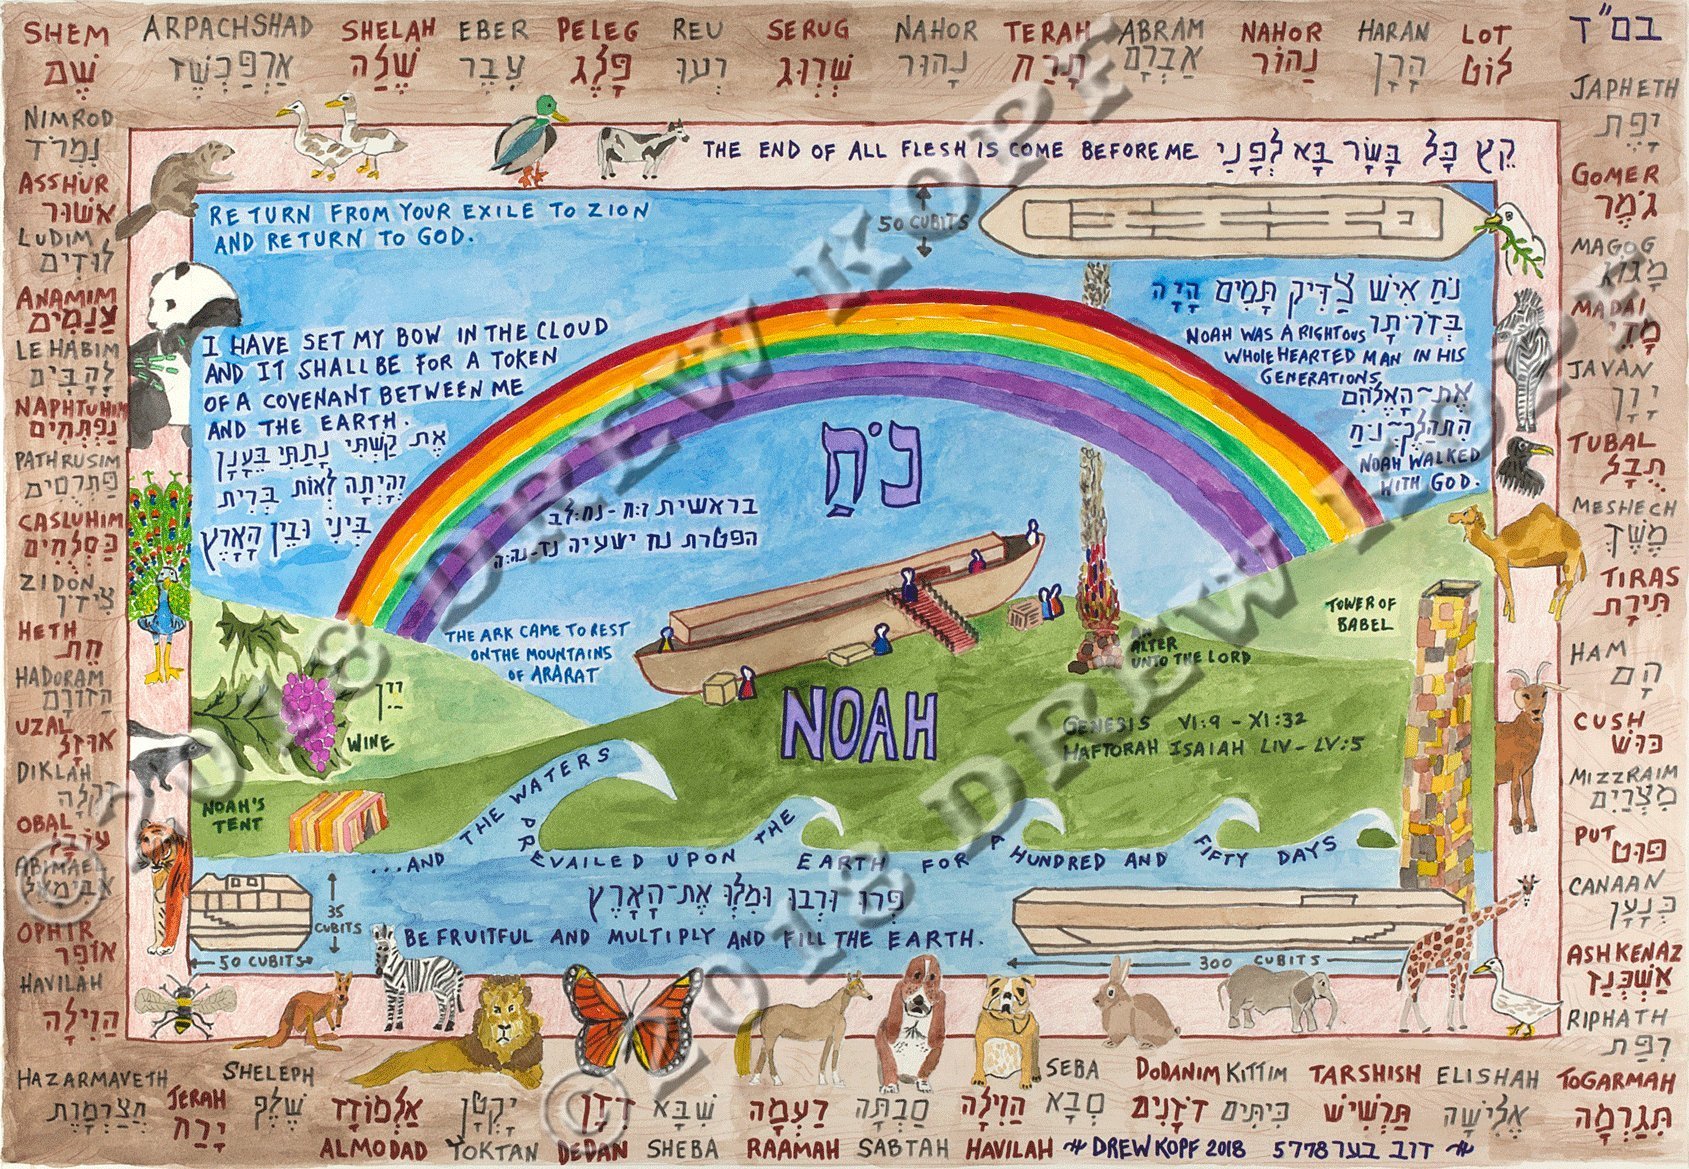 SHEM
שֵׁם
ARPACHSHAD
אַרְפַּכְשַׁד
SHELAH
שֶׁלַה
EBER
עֵבֶר
PELEG
פֶּלֶג
REU
רְעוּ
SERUG
שְׂרוּג
NAHOR
נָהוּר
TERAH
תָּרַח
ABRAM
אַבְרָם
NAHOR
נַהוֹר
HARAN
הָרָן
LOT
לוֹט
בס"ד
JAPHETH
יֶפֶת
GOMER
גֹּמֶר
MAGOG
מָגוֹג
MADAI
מָדַי
JAVAN
יָוָן
TUBAL
תֻבָל
MESHECH
מֶשֶׁךְ
TIRAS
תִּירָת
HAM
הָם
CUSH
כּוּשׁ
MIZZRAIM
מִצְרַיִם
PUT
פוּט
CANAAN
כְּנָעַן
ASHKENAZ
אַשְׁכְּנַז
RIPHATH
רִפַת
TOGARMAH
תֹּגַרְמָה
NIMROD
נִמְרֹד
ASSHUR
אשׁוּר
LUDIM
לוּדִים
ANAMIM
LEHABIM
לְהָבִים
NAPHTUHIM
נַפְתֻּחִים
PATHRUSIM
פַּתְרֻסִים
CASLUHIM
כַּסְלֻחִים
ZIDON
צִידֹן
HETH
חֵת
HADORAM
הַדוֹרָם
UZAL
אוּזָל
DIKLAH
דִקְלָה
OBAL
עוֹבָל
ABIMAEL
אֲבִימָאֵל
OPHIR
אוֹפִר
HAVILAH
הַוִילָה
HAZARMAVETH
חֲצַרְמָוֶת
JERAH
יָרַח
SHELEPH
שֶׁלֶף
אַלְמוֹדָד
ALMODAD
יָקְטָן
YOKTAN
דְדָן
DEDAN
שְׁבָא
SHEBA
רַעְמָה
RAAMAH
סַבְתָּה
SABTAH
הַוִילָה
HAVILAH
SEBA
סְבָא
DODANIM
דֹדָנִים
KITTIM
כִּיתִּים
TARSHISH
תַּרְשִׁישׁ
ELISHAH
אֱלִישָׁה
DREW KOPF 2018 5778 דוב בער
THE END OF ALL FLESH IS COME BEFORE ME קֵץ כָּל בָּשָׂר בָּא לְפָנַי
RETURN FROM YOUR EXILE TO ZION
AND RETURN TO GOD.
50 CUBITS
I HAVE SET MY BOW IN THE CLOUD
AND IT SHALL BE FOR A TOKEN
OF A COVENANT BETWEEN ME
AND THE EARTH.
אֶת קַשְׁתִּי נָתַתִּי בֶּעָנָן
וְהָיְתָה לְאוֹת בְּרִית
בֵּינִי וּבֵין הָאָרֶץ
נֹחַ אִישׁ צַדִּיק תָּמִים הָיָה
בְּדֹרֹתָר
NOAH WAS A RIGHTOUS
WHOLEHEARTED MAN IN HIS
GENERATIONS
אֶת-הָאֱלֹהִם
הִתְהַלֶּךְ-נֹחַ
NOAH WALKED
WITH GOD.
נֹחַ
בראשית ו:ח-נח:לב
הפטרת נח ישעיה נד-נה:ה
THE ARK CAME TO REST
ON THE MOUNTAINS
OF ARARAT
ALTER
UNTO THE LORD
TOWER OF
BABEL
יַיִן
WINE
NOAH
GENESIS VI:9 - XI:32
HAFTORAH ISAIAH LIV-LV:5
NOAH'S
TENT
...AND THE WATERS PREVAILED UPON THE EARTH FOR A HUNDRED AND FIFTY DAYS
פְּרוּ וּרְבוּ וּמִלְוּ אֶת-הָאָרֶץ
BE FRUITFUL AND MULTIPLY AND FILL THE EARTH.
35
CUBITS
50 CUBITS
300 CUBITS
© 2018 DREW KOPF
© 2018 DREW KOPF